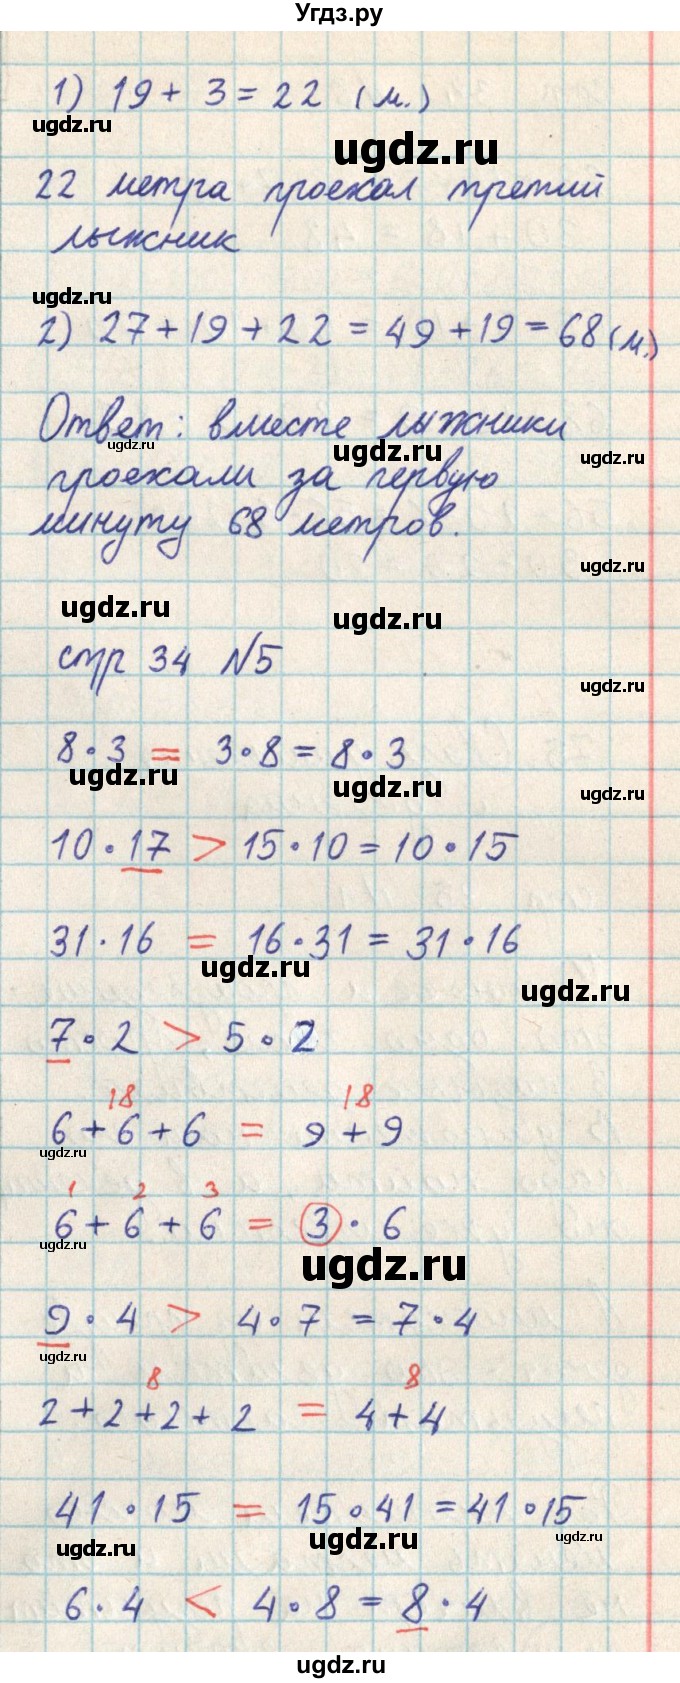 Угдз.ру
1) 19 + 3 = 22 (м.)
ugdz.ru
ugdz.ru
22 метра проехал третий
лыжник
ugdz.ru
2) 27 + 19 + 22 = 49 + 19 = 68 (м.)
Ответ: вместе лыжники
ugdz.ru
ugdz.ru
ugdz.ru
проехали за первую
минуту 68 метров.
ugdz.ru
ugdz.ru
ugdz.ru
стр 34 №5
ugdz.ru
8 · 3 = 3 · 8 = 8 · 3
ugdz.ru
ugdz.ru
ugdz.ru
10 · 17 > 15 · 10 = 10 · 15
31 · 16 = 16 · 31 = 31 · 16
ugdz.ru
ugdz.ru
7 · 2 > 5 · 2
18 18
6 + 6 + 6 = 9 + 9
ugdz.ru
1 2 3
6 + 6 + 6 = 3 · 6
ugdz.ru
ugdz.ru
9 · 4 > 4 · 7 = 7 · 4
ugdz.ru
8 8
2 + 2 + 2 + 2 = 4 + 4
41 · 15 = 15 · 41 = 41 · 15
ugdz.ru
ugdz.ru
ugdz.ru
6 · 4 < 4 · 8 = 8 · 4
ugdz.ru